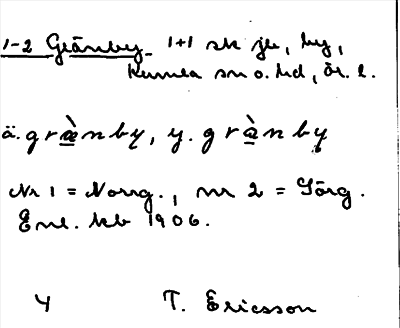 1-2 Gränby. 1+1 sk jb, by,
Kumla sn o. hd, ör. l.
ä. grànby, y. grànby
Nr 1 = Norrg., nr 2 = Sörg.
Enl. kb 1906.
4 T. Ericsson